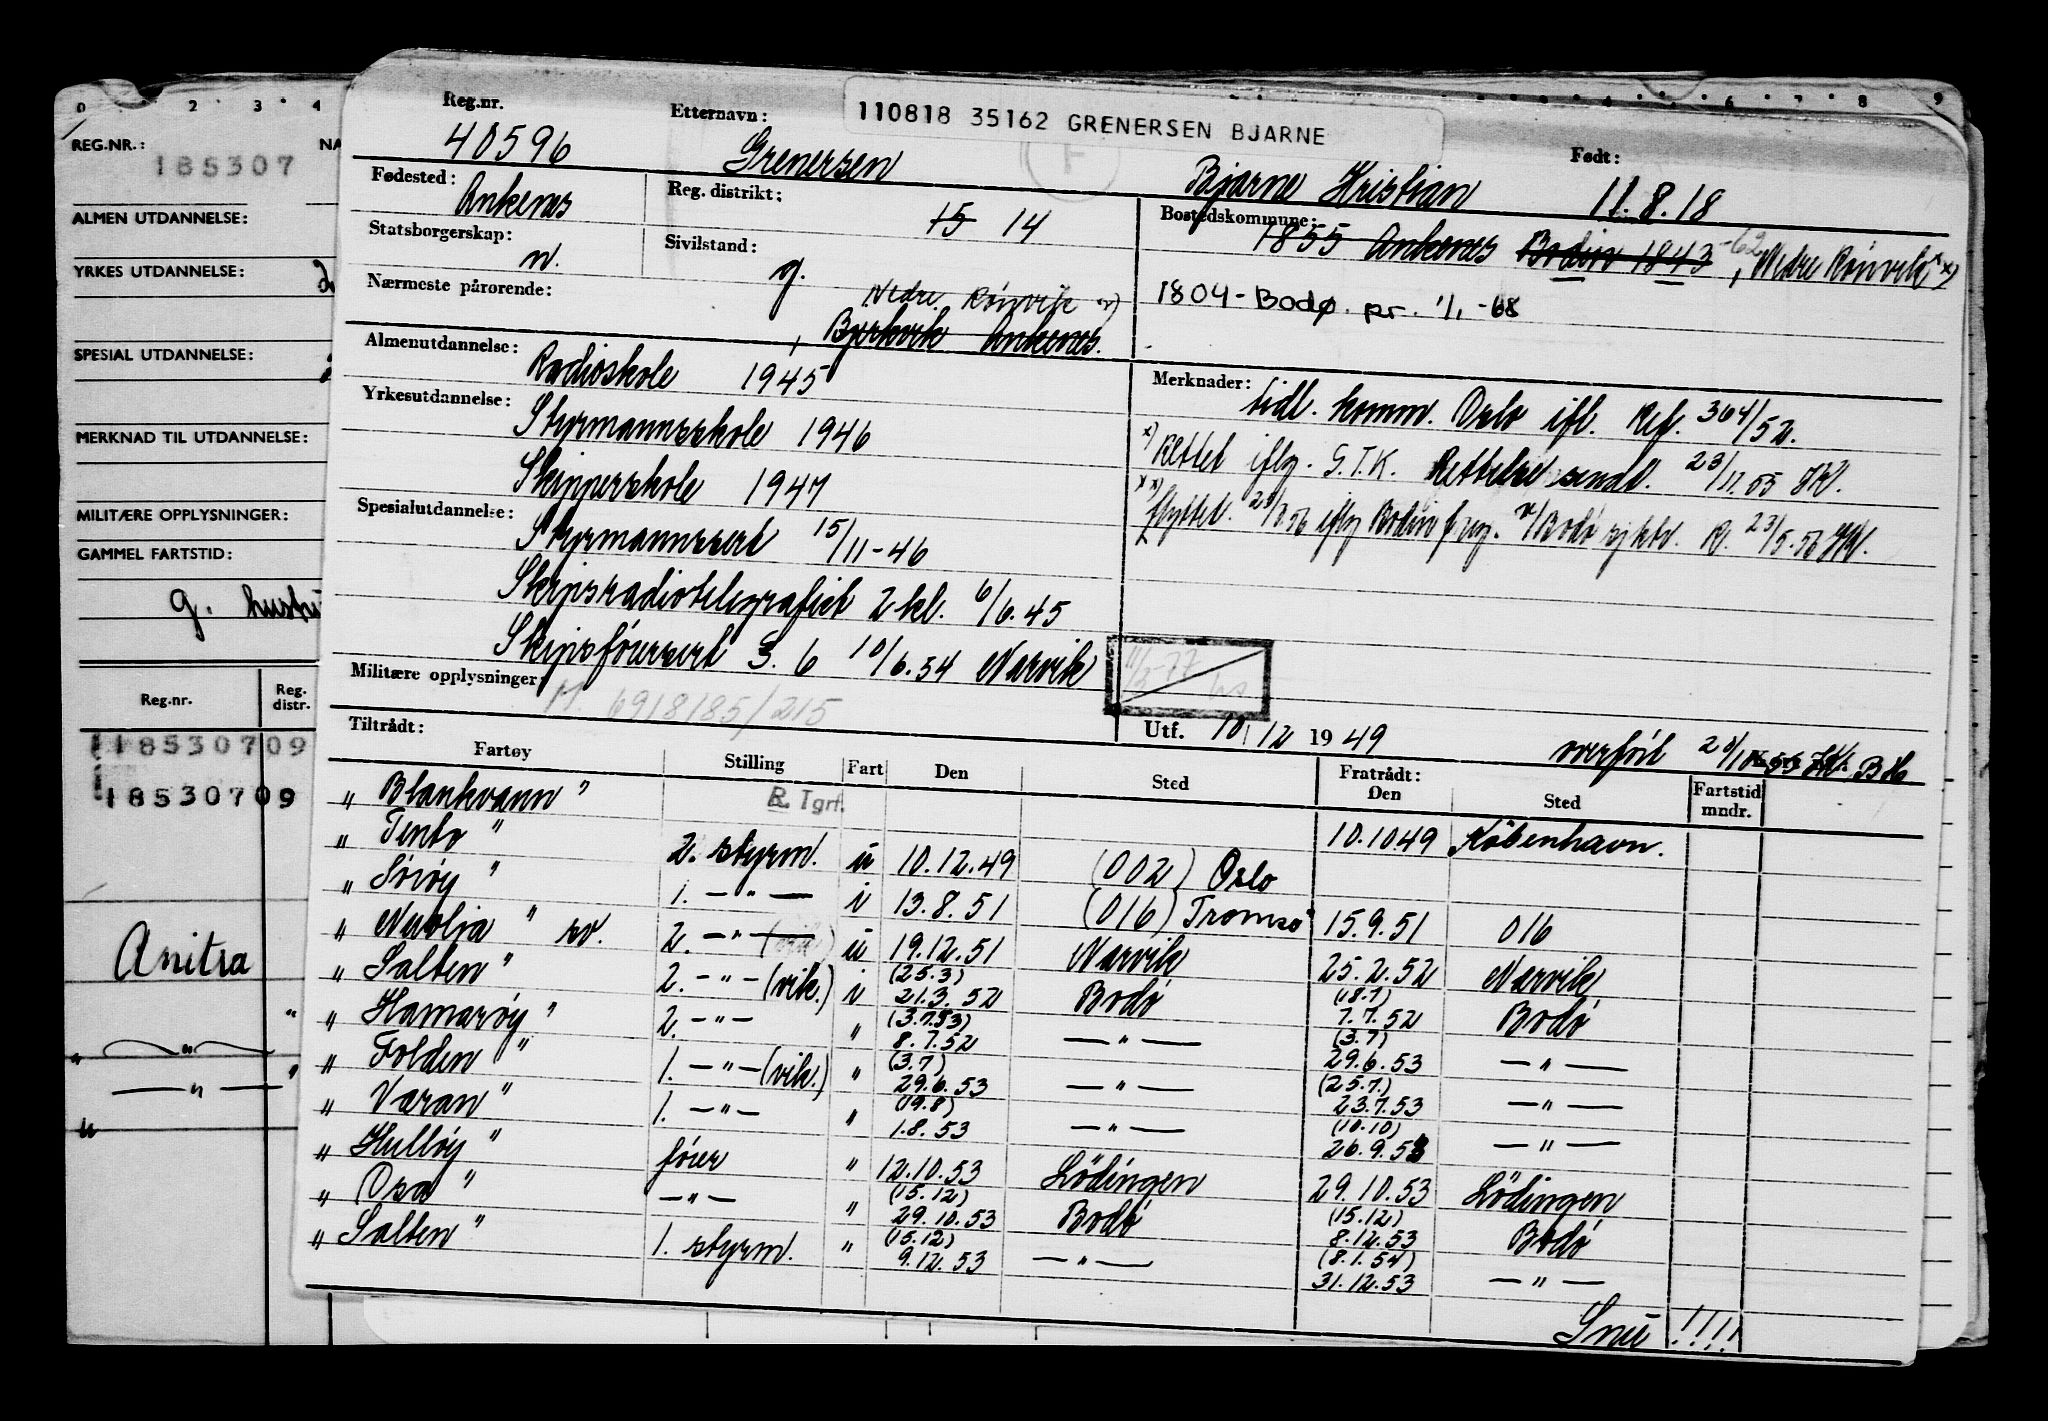 0 2 3 4 4 6 7 8 9
REG.NR.: NA
185307
ALMEN UTDANNELSE:
YRKES UTDANNELSE:
SPESIAL UTDANNELSE:
MERKNAD TIL UTDANNELSE:
MILITÆRE OPPLYSNINGER:
GAMMEL FARTSTID:
g.
Reg.nr. Reg. distr.
18530709
18530709
Anitra
" — " —
" — " — "
"
110818 35162 GRENERSEN BJARNE
Reg.nr. 40596 Etternavn: Grenersen Bjarne Kristian Født: 11.8.18
F
Fødested: Ankenes Reg. distrikt: 15 14 Bostedskommune: 1855 Ankenes Bodin 1843 -62, Nedre Rønvik xx)
Statsborgerskap: n. Sivilstand: g. 1804-Bodø. pr. 1/1-68
Nærmeste pårørende: Nedre Rønvik xx)
, Bjerkvik Ankenes.
Almenutdannelse: Radioskole 1945
Yrkesutdannelse: Styrmannsskole 1946
Skipperskole 1947
Spesialutdannelse: Styrmannssert 15/11-46
Skipsradiotelegrafist 2 kl. 6/6.45
Skipsførersert S. 6 10/6.54 Narvik
Militære opplysninger: M. 6918185/215
Merknader: tidl. komm. Oslo ifl. Ref. 364/52.
x) Rettet iflg. S.T.K. Rettelse sendt. 23/11.55
xx) flyttet. iflg Bodin Bodø 23/5.56
Utf. 10/12 1949 overført
Tiltrådt: Fratrådt:
Fartøy Stilling Fart Den Sted Den Sted Fartstid mndr.
" Blankvann " R. Tgrf. 10.1049 København.
" Tento " 2. styrm. u 10.12.49 (002) Oslo
" Sørøy " 1. — " — i 13.8.51 (016) Tromsø 15.9.51 016
" Nuolja " sv. 2. — " — u 19.12.51 Narvik 25.2.52 Narvik
" Salten " 2. — " — (vik.) i (25.3) 21.3.52 Bodø (18.7) 7.7.52 Bodø
" Hamarøy " 2. — " — " (3.7.53) 8.7.52 — " — (3.7) 29.6.53 — " —
" Folden " 1. — " — (vik.) " (3.7) 29.6.53 — " — (25.7.) 23.7.53 — " —
" Væran " 1. — " — " (19.8) 1.8.53 — " — (10.10) 26.9.53 — " —
" Hulløy " fører " 12.10.53 Lödingen 29.10.53 Lödingen
" Osa " — " — " (15.12) 29.10.53 Bodø (15.12) 8.12.53 Bodø
" Salten " 1. styrm. " (15.12) 9.12.53 — " — (8.1.54) 31.12.53 — " —
Snu !!!!